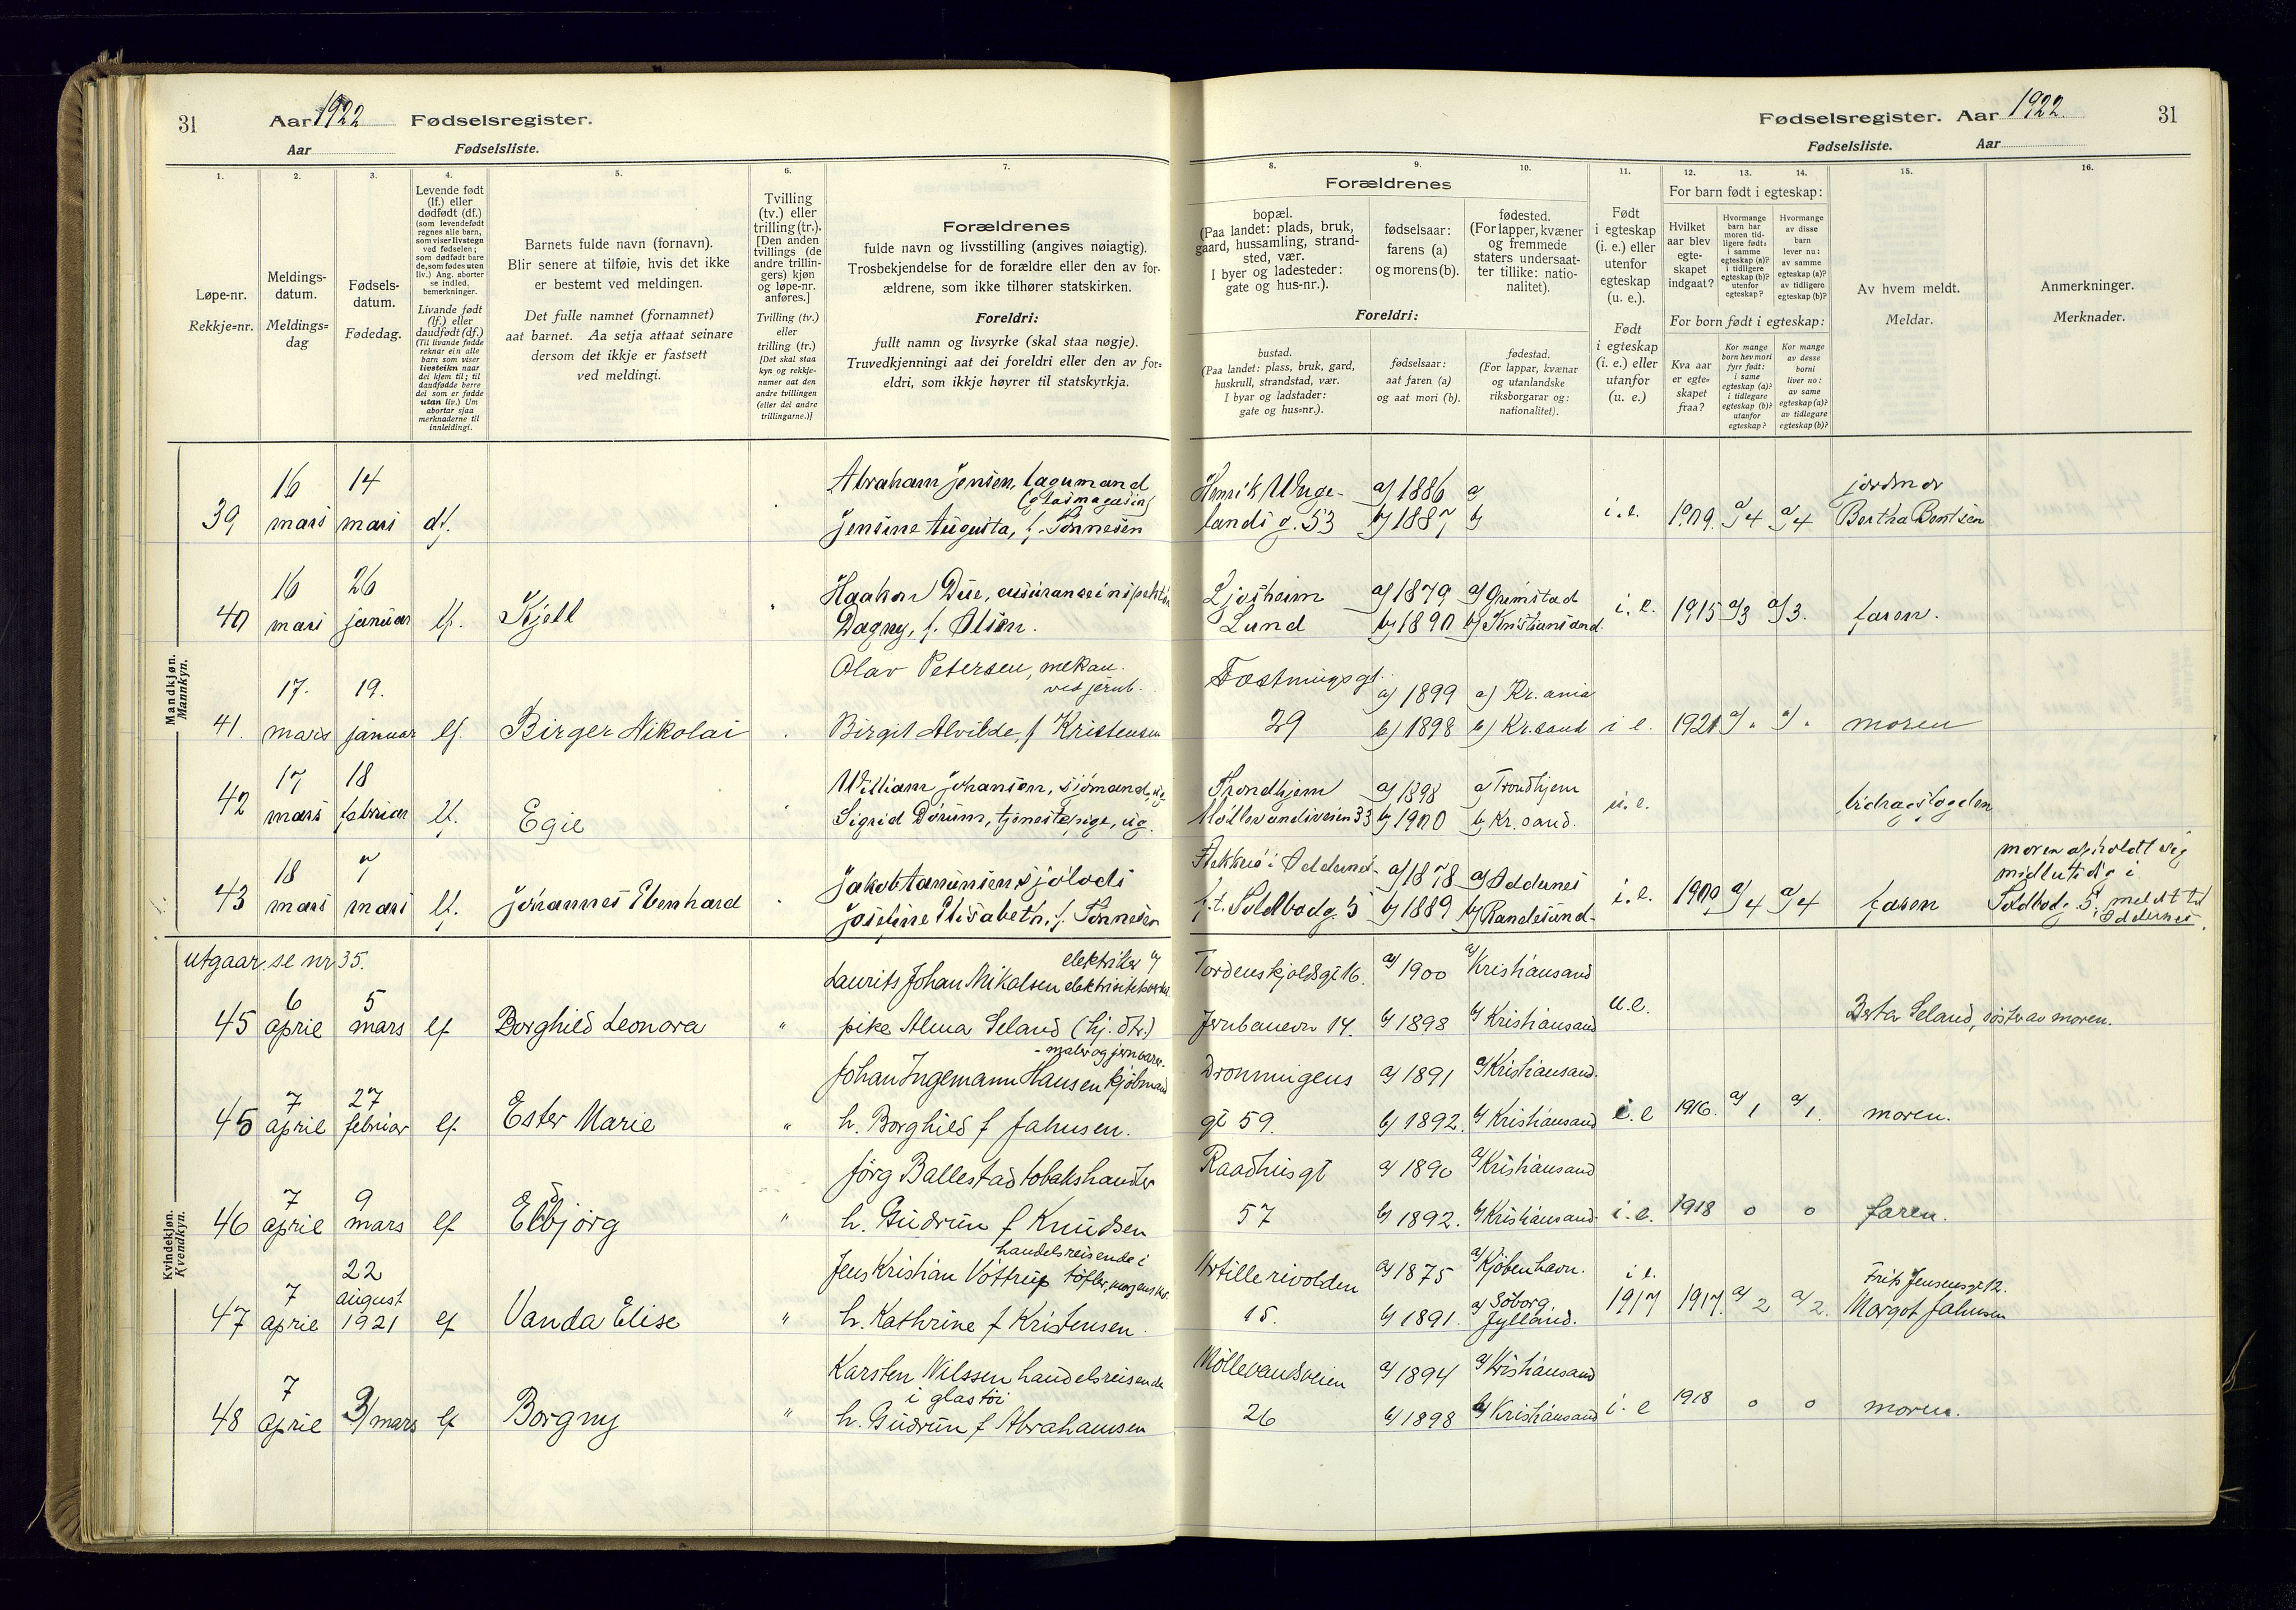 31 Aar 1922 Fødselsregister.
Aar Fødselsliste.
Fødselsregister. Aar 1922. 31
Fødselsliste. Aar
1. 2. 3. 4. 5. 6. 7.
Løpe-nr.
Rekkje=nr.
Meldings-
datum.
Meldings=
dag
Fødsels-
datum.
Fødedag.
Levende født
(lf.) eller
dødfødt (df.)
(som levendefødt
regnes alle barn,
som viser livstegn
ved fødselen;
som dødfødt bare
de, som fødes uten
liv.) Ang. aborter
se indled.
bemerkninger.
Livande født
(lf.) eller
daudfødt (df.)
(Til livande fødde
reknar ein alle
barn som viser
livsteikn naar
dei kjem til; til
daudfødde berre
dei som er fødde
utan liv.) Um
abortar sjaa
merknaderne til
innleidingi.
Barnets fulde navn (fornavn).
Blir senere at tilføie, hvis det ikke
er bestemt ved meldingen.
Det fulle namnet (fornamnet)
aat barnet. Aa setja attaat seinare
dersom det ikkje er fastsett
ved meldingi.
Tvilling
(tv.) eller
trilling (tr.).
[Den anden
tvillings (de
andre trillin-
gers) kjøn
og løpe-nr.
anføres.]
Tvilling (tv.)
eller
trilling (tr.)
[Det skal staa
kyn og rekkje-
numer aat den
andre tvillingen
(eller dei andre
trillingarne.)]
Forældrenes
fulde navn og livsstilling (angives nøiagtig).
Trosbekjendelse for de forældre eller den av for-
ældrene, som ikke tilhører statskirken.
Foreldri:
fullt namn og livsyrke (skal staa nøgje).
Truvedkjenningi aat dei foreldri eller den av for=
eldri, som ikkje høyrer til statskyrkja.
8. 9. 10. 11. 12. 13. 14. 15. 16.
Forældrenes
bopæl.
(Paa landet: plads, bruk,
gaard, hussamling, strand-
sted, vær.
I byer og ladesteder:
gate og hus-nr.).
fødselsaar:
farens (a)
og morens (b).
fødested.
(For lapper, kvæner
og fremmede
staters undersaat-
ter tillike: natio-
nalitet).
Foreldri:
bustad.
(Paa landet: plass, bruk, gard,
huskrull, strandstad, vær.
I byar og ladstader:
gate og hus=nr.).
fødselsaar:
aat faren (a)
og aat mori (b).
fødestad.
(For lappar, kvænar
og utanlandske
riksborgarar og:
nationalitet).
Født
i egteskap
(i. e.) eller
utenfor
egteskap
(u. e.).
Født
i egteskap
(i. e.) eller
utanfor
(u. e.)
For barn født i egteskap:
Hvilket
aar blev
egte-
skapet
indgaat?
Hvormange
barn har
moren tid-
ligere født:
i samme
egteskap (a)?
i tidligere
egteskap (b)?
utenfor
egteskap?
Hvormange
av disse
barn
lever nu:
av samme
egteskap (a)?
av tidligere
egteskap (b)?
For born født i egteskap:
Kva aar
er egte=
skapet
fraa?
Kor mange
born hev mori
fyrr født:
i same
egteskap (a)?
i tidlegare
egteskap (b)?
utanfor
egteskap?
Kor mange
av desse
borni
liver no:
av same
egteskap (a)?
av tidlegare
egteskap (b)?
Av hvem meldt.
Meldar.
Anmerkninger.
Merknader.
Mandkjøn.
Mannkyn.
39 16 mars 14 mars df. Abraham Jensen, lagermand (glasmagasin)
Jensine Augusta, f. Tønnesen
Henrik Wergelands g. 53 a) 1886 b) 1887 a) b) i. e. 1909. a) 4 a) 4 jordmor Bertha Bentsen
40 16 mars 26 januar lf. Kjell Haakon Due, assuranseinspektør
Dagny, f. Olsen.
Ljosheim Lund a) 1879 b) 1890 a) Grimstad b) Kristiansand. i. e. 1915 a) 3 a) 3. faren.
41. 17. mars 19. januar lf. Birger Nikolai Olav Petersen, mekan. ved jernb.
Birgit Alvilde, f Kristensen
Festningsgt. 29 a) 1899 b) 1898 a) Kr.ania b) Kr.sand i e. 1921 a) " a) " moren
42 17 mars 18 februar lf. Egil William Johansen, sjømand, ug.
Sigrid Dørum, tjenestepige, ug.
Trondhjem Møllevandsveien 33 a) 1898 b) 1900 a) Trondhjem b) Kr.sand. u. e. bidragsfogden
43 18 mars 7 mars lf. Johannes Ebenhard Jakob Aanunsen, sjølods
Josefine Elisabeth, f. Tønnesen
Flekkerø i Oddernes f.t. Toldbodg. 5 a) 1878 b) 1889 a) Oddernes b) Randesund. i. e. 1909 a) 4 a) 4 faren moren opholdt sig midlertidig i Toldbodg. 5. meldt til Oddernes.
Kvindekjøn.
Kvendkyn.
utgaar. se nr 35.
45 6 april 5 mars lf Borghild Leonora " Laurits Johan Nikolsen elektriker v/ elektricitetsverket
pike Alma Seland (hj. dtr.)
Tordenskjoldsgt 16. Jernbanevn 14. a) 1900 b) 1898 a) Kristiansand b) Kristiansand u. e. Berta Seland, søster av moren.
45 7 april 27 februar lf Ester Marie " Johan Ingemann Hansen kjøbmand - maler og jernvare-
h. Borghild f Jahnsen.
Dronningens gt 59. a) 1891 b) 1892. a) Kristiansand. b) Kristiansand i. e 1916. a) 1 a) 1. moren.
46 7 april 9 mars lf Ebbjørg " Jørg Ballestad tobakshandler
h. Gudrun f Knudsen
Raadhusgt 57 a) 1890 b) 1892. a) Kristiansand b) Kristiansand i. e. 1918 o o faren.
47 7 april 22 august 1921 lf Vanda Elise " Jens Kristian Vottrup handelsreisende i tøfler,
h. Kathrine f Kristensen.
Artillerivolden 15. a) 1875 b) 1891. a) Kjøbenhavn. a) Søborg. Jylland. i e. 1917 1917. a) 2 a) 2. Frits Jensensgt 12. Margot Jahnsen
48 7 april 3/ mars lf Borgny " Karsten Nilssen handelsreisende i glastøi
h. Gudrun f Abrahamsen
Møllevandsveien 26 a) 1894 b) 1898 a) Kristiansand b) Kristiansand i. e 1918 o o moren.